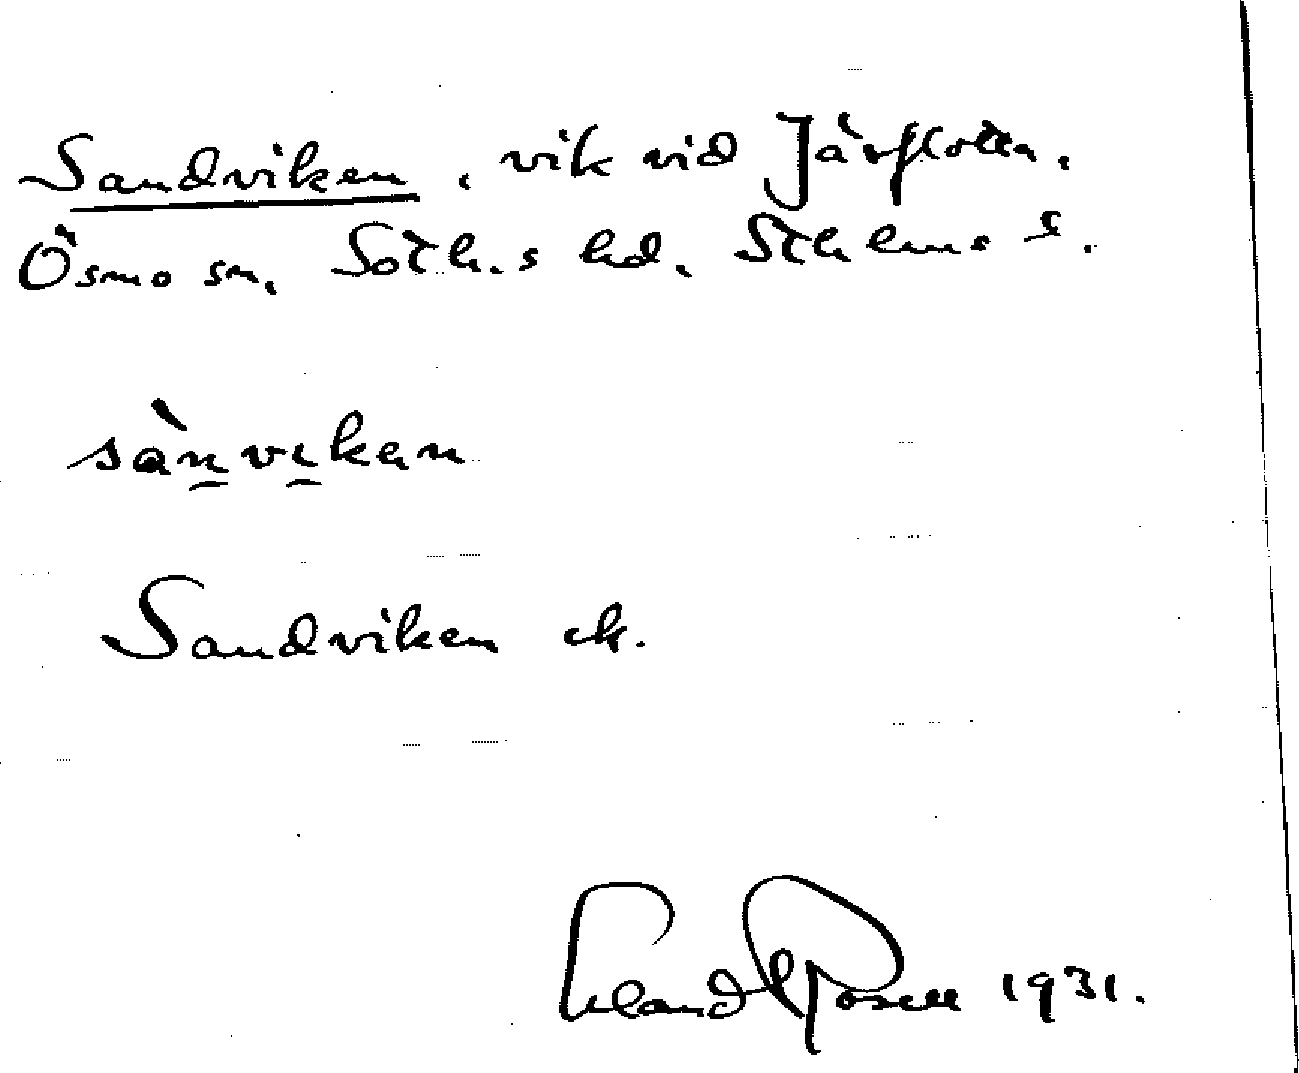 Sandviken, vik vid Järflotta,
Ösmo sn, Soth.s hd, Sthlms l.
sànvikan
Sandviken ek.
Erland Rosell 1931.